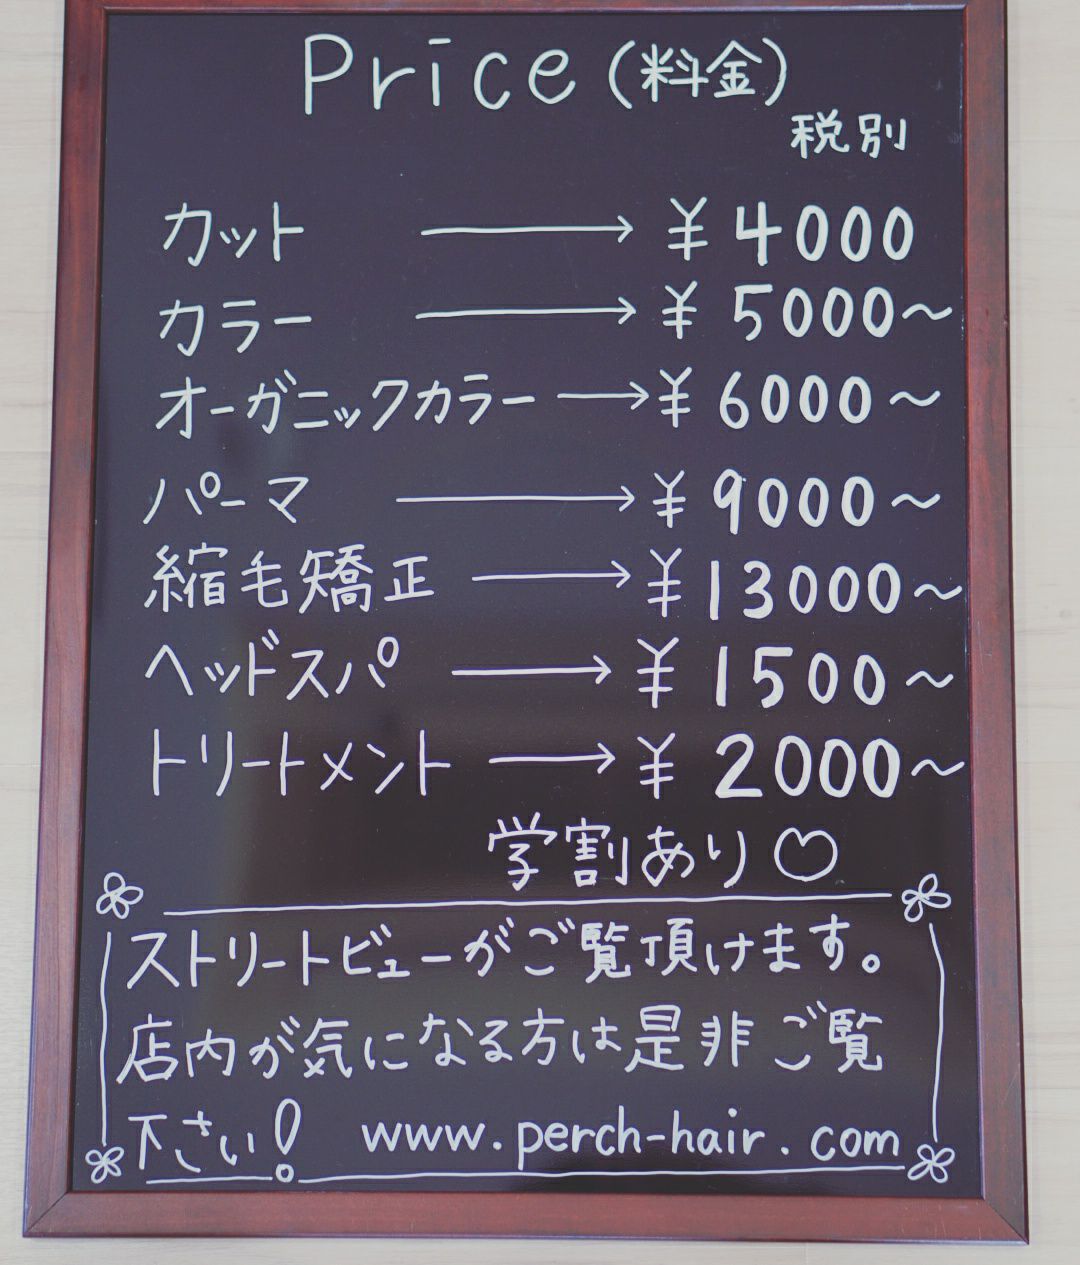 Price(料金)
税別
カット → ¥4000
カラー → ¥5000〜
オーガニックカラー → ¥6000〜
パーマ → ¥9000〜
縮毛矯正 → ¥13000〜
ヘッドスパ → ¥1500〜
トリートメント → ¥2000〜
学割あり♡
ストリートビューがご覧頂けます。
店内が気になる方は是非ご覧
下さい! www.perch-hair.com